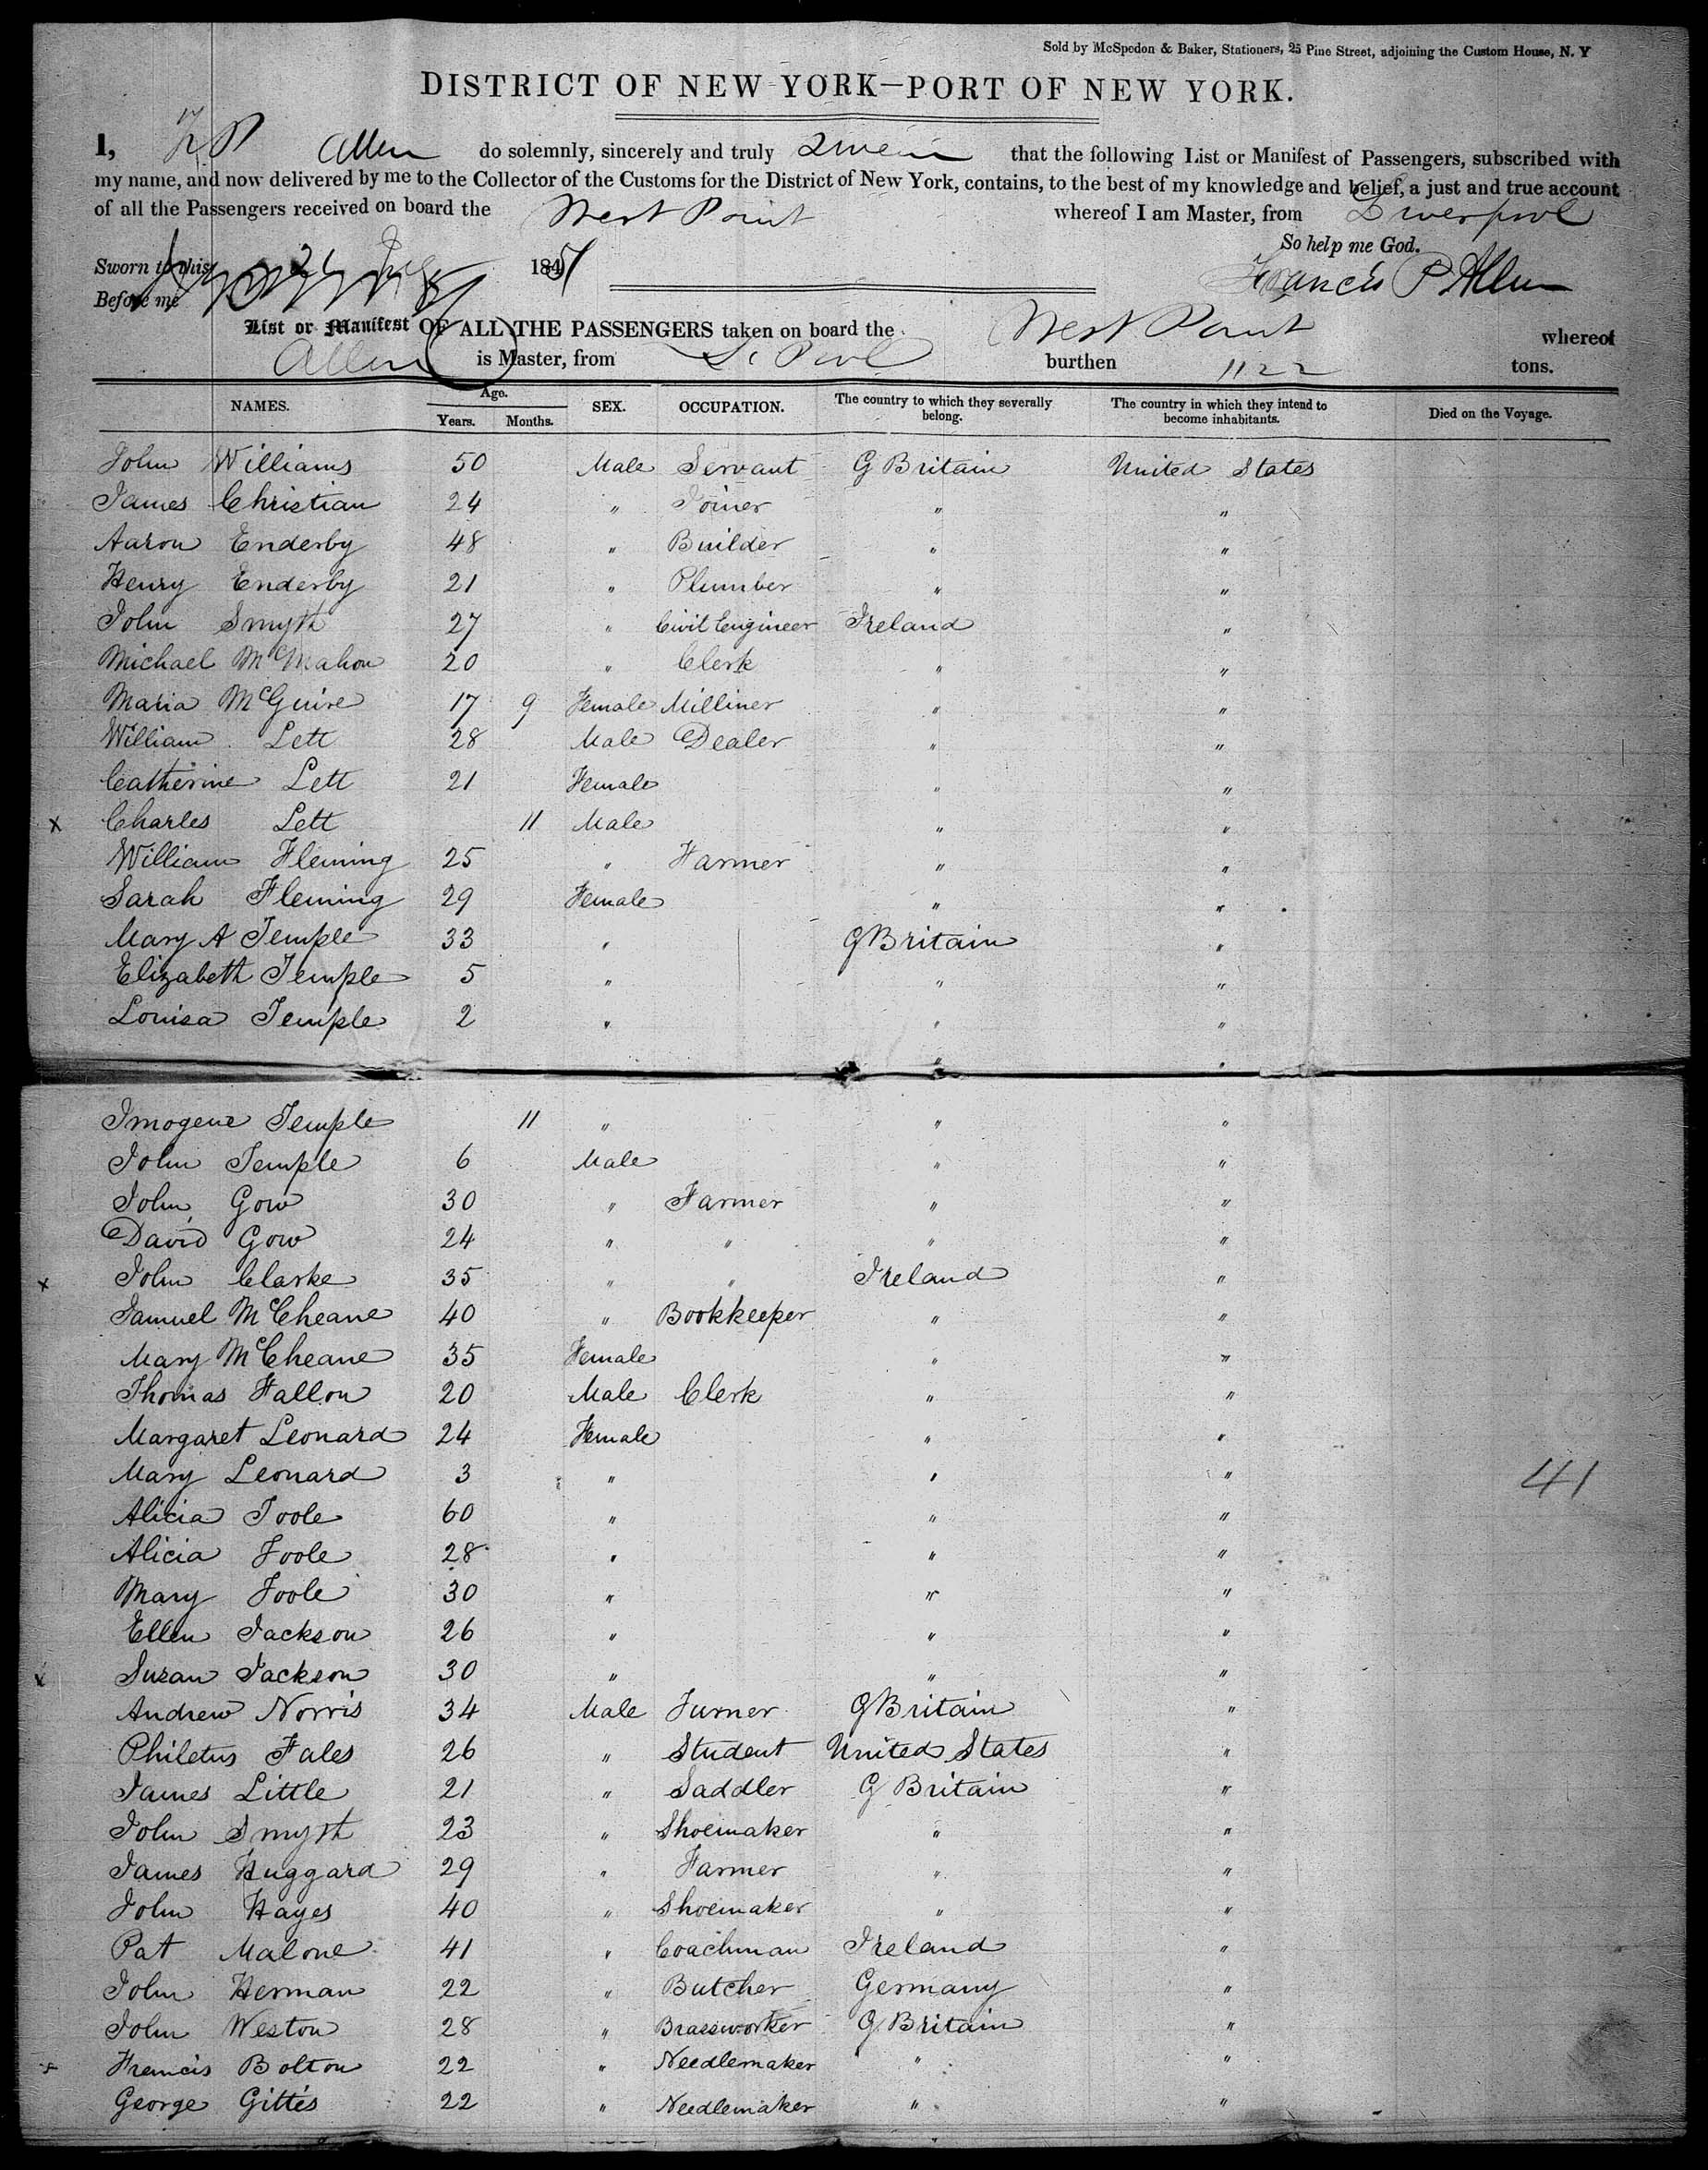 Sold by McSpedon & Baker, Stationers, 25 Pine Street, adjoining the Custom House, N. Y
DISTRICT OF NEW YORK—PORT OF NEW YORK.
I, F P Allen do solemnly, sincerely and truly swear that the following List or Manifest of Passengers, subscribed with
my name, and now delivered by me to the Collector of the Customs for the District of New York, contains, to the best of my knowledge and belief, a just and true account
of all the Passengers received on board the West Point whereof I am Master, from Liverpool
So help me God.
Sworn to this 184
Francis P Allen
Before me
List or Manifest OF ALL THE PASSENGERS taken on board the West Point whereof
Allen is Master, from L. Pool burthen 1122 tons.
NAMES. Age. Years. Months. SEX. OCCUPATION. The country to which they severally belong. The country in which they intend to become inhabitants. Died on the Voyage.
John Williams 50 Male Servant G Britain United States
James Christian 24 " Joiner " "
Aaron Enderby 48 " Builder " "
Henry Enderby 21 " Plumber " "
John Smyth 27 " Civil Engineer Ireland "
Michael McMahon 20 " Clerk " "
Maria McGuire 17 9 Female Milliner " "
William Lett 28 Male Dealer " "
Catherine Lett 21 Female " "
x Charles Lett 11 Male " "
William Fleming 25 " Farmer " "
Sarah Fleming 29 Female " "
Mary A Temple 33 " G Britain "
Elizabeth Temple 5 " " "
Louisa Temple 2 " " "
" "
Imogene Temple 11 " " "
John Temple 6 Male " "
John Gow 30 " Farmer " "
David Gow 24 " " " "
x John Clarke 35 " " Ireland "
Samuel McCheane 40 " Bookkeeper " "
Mary McCheane 35 Female " "
Thomas Fallon 20 Male Clerk " "
Margaret Leonard 24 Female " "
Mary Leonard 3 " " " 41
Alicia Toole 60 " " "
Alicia Toole 28 " " "
Mary Toole 30 " " "
Ellen Jackson 26 " " "
x Susan Jackson 30 " " "
Andrew Norris 34 Male Turner G Britain "
Philetus Fales 26 " Student United States "
James Little 21 " Saddler G Britain "
John Smyth 23 " Shoemaker " "
James Huggard 29 " Farmer " "
John Hayes 40 " Shoemaker " "
Pat Malone 41 " Coachman Ireland "
John Herman 22 " Butcher Germany "
John Weston 28 " Brassworker G Britain "
x Francis Bolton 22 " Needlemaker " "
George Gittes 22 " Needlemaker " "